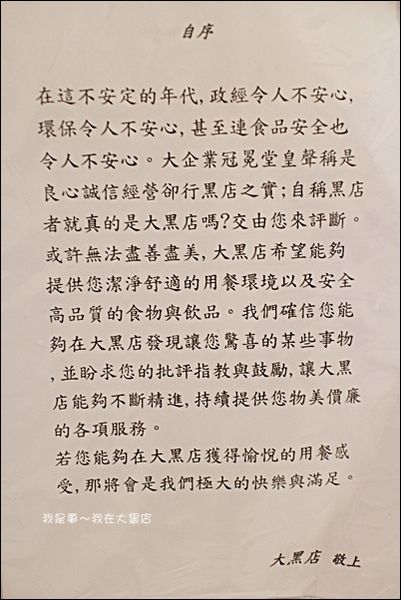 自序
在這不安定的年代, 政經令人不安心,
環保令人不安心, 甚至連食品安全也
令人不安心。大企業冠冕堂皇聲稱是
良心誠信經營卻行黑店之實; 自稱黑店
者就真的是大黑店嗎? 交由您來評斷。
或許無法盡善盡美, 大黑店希望能夠
提供您潔淨舒適的用餐環境以及安全
高品質的食物與飲品。我們確信您能
夠在大黑店發現讓您驚喜的某些事物
, 並盼求您的批評指教與鼓勵, 讓大黑
店能夠不斷精進, 持續提供您物美價廉
的各項服務。
若您能夠在大黑店獲得愉悅的用餐感
受, 那將會是我們極大的快樂與滿足。
我是夢～我在大黑店
大黑店 敬上